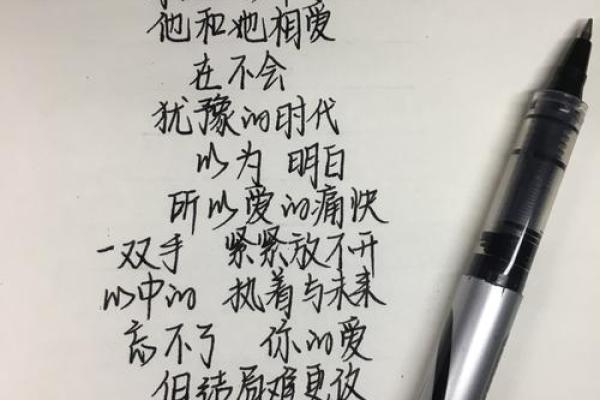 他和她相爱
在不会
犹豫的时代
以为 明白
所以爱的痛快
一双手 紧紧放不开
心中的 执着与未来
忘不了 你的爱
但结局难更改